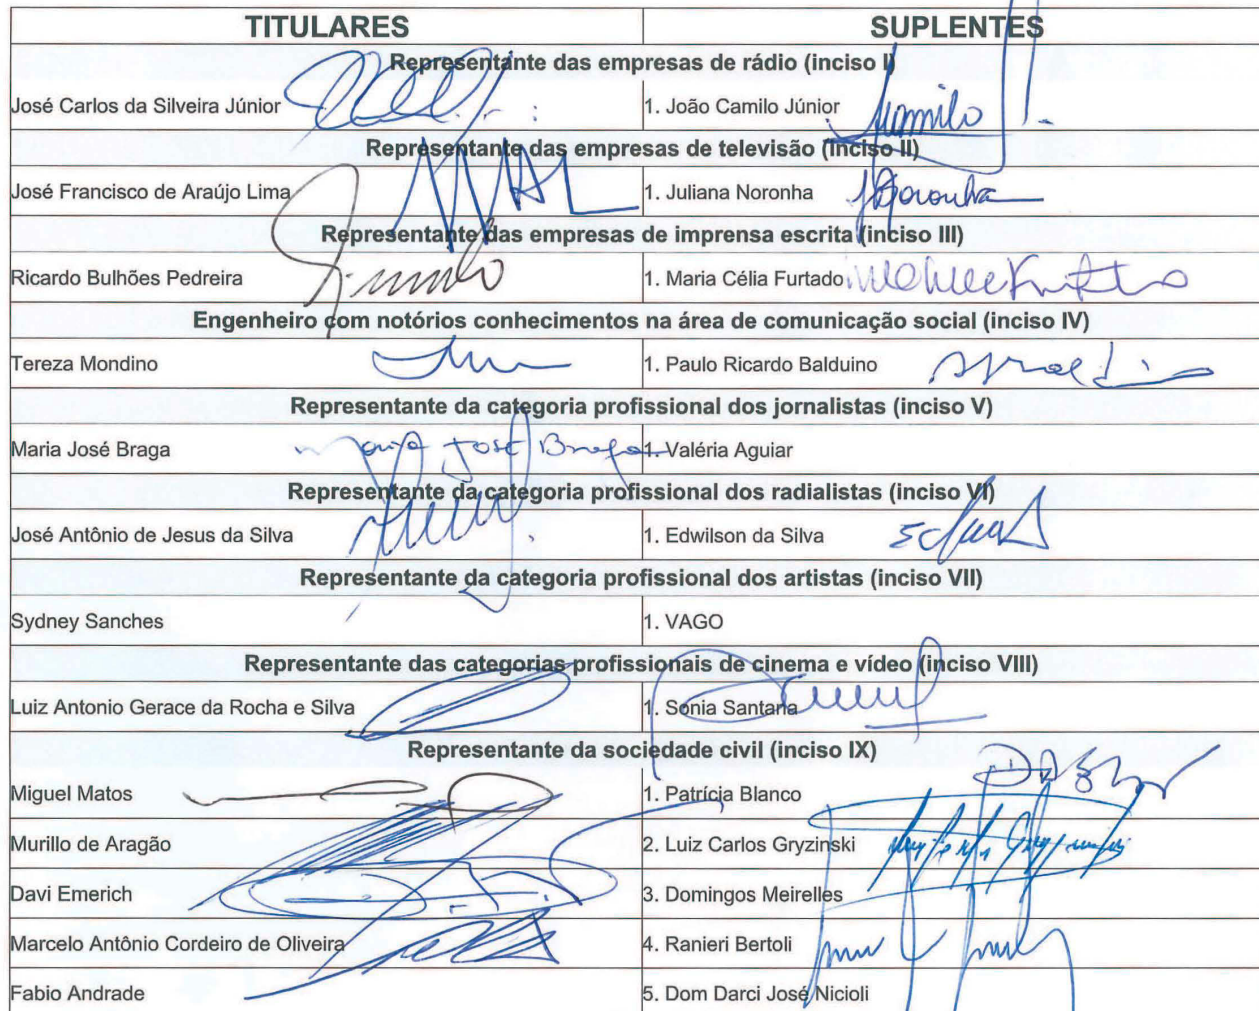 TITULARES SUPLENTES
Representante das empresas de rádio (inciso I)
José Carlos da Silveira Júnior 1. João Camilo Júnior
Representante das empresas de televisão (inciso II)
José Francisco de Araújo Lima 1. Juliana Noronha JNoronha
Representante das empresas de imprensa escrita (inciso III)
Ricardo Bulhões Pedreira 1. Maria Célia Furtado
Engenheiro com notórios conhecimentos na área de comunicação social (inciso IV)
Tereza Mondino 1. Paulo Ricardo Balduino
Representante da categoria profissional dos jornalistas (inciso V)
Maria José Braga Maria José Braga 1. Valéria Aguiar
Representante da categoria profissional dos radialistas (inciso VI)
José Antônio de Jesus da Silva 1. Edwilson da Silva
Representante da categoria profissional dos artistas (inciso VII)
Sydney Sanches 1. VAGO
Representante das categorias profissionais de cinema e vídeo (inciso VIII)
Luiz Antonio Gerace da Rocha e Silva 1. Sonia Santana
Representante da sociedade civil (inciso IX)
Miguel Matos 1. Patrícia Blanco
Murillo de Aragão 2. Luiz Carlos Gryzinski
Davi Emerich 3. Domingos Meirelles
Marcelo Antônio Cordeiro de Oliveira 4. Ranieri Bertoli
Fabio Andrade 5. Dom Darci José Nicioli